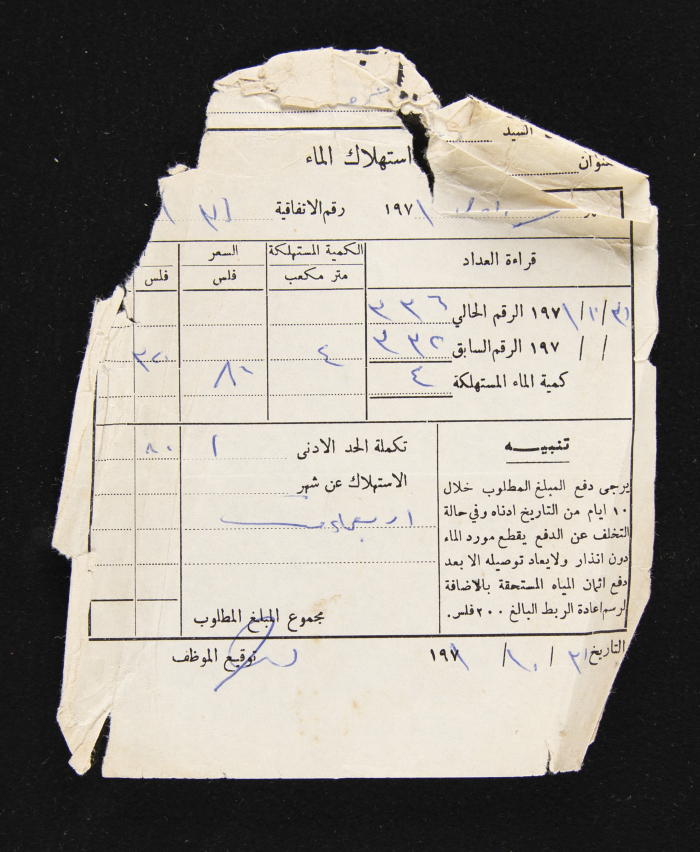 السيد
عنوان
استهلاك الماء
١٩٧١ رقم الاتفاقية
قراءة العداد الكمية المستهلكة السعر
متر مكعب فلس فلس
٣١/١٠/١٩٧١ الرقم الحالي ٣٣٦
/ / ١٩٧ الرقم السابق ٣٣٢ ٤ ٣٢٠
كمية الماء المستهلكة ٤ ٨٠
تنبيه
يرجى دفع المبلغ المطلوب خلال
١٠ ايام من التاريخ ادناه وفي حالة
التخلف عن الدفع يقطع مورد الماء
دون انذار ولا يعاد توصيله الا بعد
دفع اثمان المياه المستحقة بالاضافة
لرسم اعادة الربط البالغ ٢٠٠ فلس.
تكملة الحد الادنى ١ ٨٠
الاستهلاك عن شهر
اربعماية
مجموع المبلغ المطلوب
التاريخ ٣١/١٠/١٩٧١ توقيع الموظف